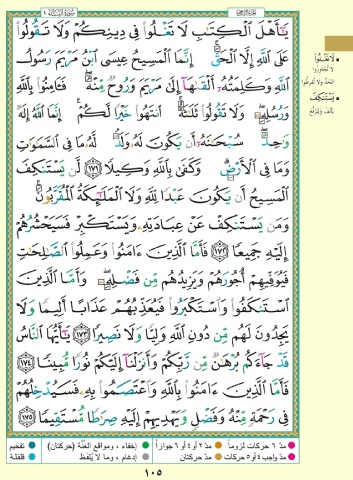 سورة النساء ٤
الجزء السادس
يَٰٓأَهۡلَ ٱلۡكِتَٰبِ لَا تَغۡلُواْ فِي دِينِكُمۡ وَلَا تَقُولُواْ
عَلَى ٱللَّهِ إِلَّا ٱلۡحَقَّۚ إِنَّمَا ٱلۡمَسِيحُ عِيسَى ٱبۡنُ مَرۡيَمَ رَسُولُ
ٱللَّهِ وَكَلِمَتُهُۥٓ أَلۡقَىٰهَآ إِلَىٰ مَرۡيَمَ وَرُوحٞ مِّنۡهُۖ فَـَٔامِنُواْ بِٱللَّهِ
وَرُسُلِهِۦۖ وَلَا تَقُولُواْ ثَلَٰثَةٌۚ ٱنتَهُواْ خَيۡرٗا لَّكُمۡۚ إِنَّمَا ٱللَّهُ إِلَٰهٞ
وَٰحِدٞۖ سُبۡحَٰنَهُۥٓ أَن يَكُونَ لَهُۥ وَلَدٞۘ لَّهُۥ مَا فِي ٱلسَّمَٰوَٰتِ
وَمَا فِي ٱلۡأَرۡضِۗ وَكَفَىٰ بِٱللَّهِ وَكِيلٗا ١٧١ لَّن يَسۡتَنكِفَ
ٱلۡمَسِيحُ أَن يَكُونَ عَبۡدٗا لِّلَّهِ وَلَا ٱلۡمَلَٰٓئِكَةُ ٱلۡمُقَرَّبُونَۚ
وَمَن يَسۡتَنكِفۡ عَنۡ عِبَادَتِهِۦ وَيَسۡتَكۡبِرۡ فَسَيَحۡشُرُهُمۡ
إِلَيۡهِ جَمِيعٗا ١٧٢ فَأَمَّا ٱلَّذِينَ ءَامَنُواْ وَعَمِلُواْ ٱلصَّٰلِحَٰتِ
فَيُوَفِّيهِمۡ أُجُورَهُمۡ وَيَزِيدُهُم مِّن فَضۡلِهِۦۖ وَأَمَّا ٱلَّذِينَ
ٱسۡتَنكَفُواْ وَٱسۡتَكۡبَرُواْ فَيُعَذِّبُهُمۡ عَذَابًا أَلِيمٗا وَلَا
يَجِدُونَ لَهُم مِّن دُونِ ٱللَّهِ وَلِيّٗا وَلَا نَصِيرٗا ١٧٣ يَٰٓأَيُّهَا ٱلنَّاسُ
قَدۡ جَآءَكُم بُرۡهَٰنٞ مِّن رَّبِّكُمۡ وَأَنزَلۡنَآ إِلَيۡكُمۡ نُورٗا مُّبِينٗا ١٧٤
فَأَمَّا ٱلَّذِينَ ءَامَنُواْ بِٱللَّهِ وَٱعۡتَصَمُواْ بِهِۦ فَسَيُدۡخِلُهُمۡ
فِي رَحۡمَةٖ مِّنۡهُ وَفَضۡلٖ وَيَهۡدِيهِمۡ إِلَيۡهِ صِرَٰطٗا مُّسۡتَقِيمٗا ١٧٥
لَا تَغْلُوا
لا تُجاوزوا
الحدّ ولا تُفرطوا
يَسْتَنكِفَ
يأنف ويترفّع
مدّ ٦ حركات لزوماً مدّ ٢ أو ٤ أو ٦ جوازاً إخفاء، ومواقع الغُنَّة (حركتان) تفخيم
مدّ واجب ٤ أو ٥ حركات مدّ حركتان إدغام، وما لا يُلفَظ قلقلة
١٠٥